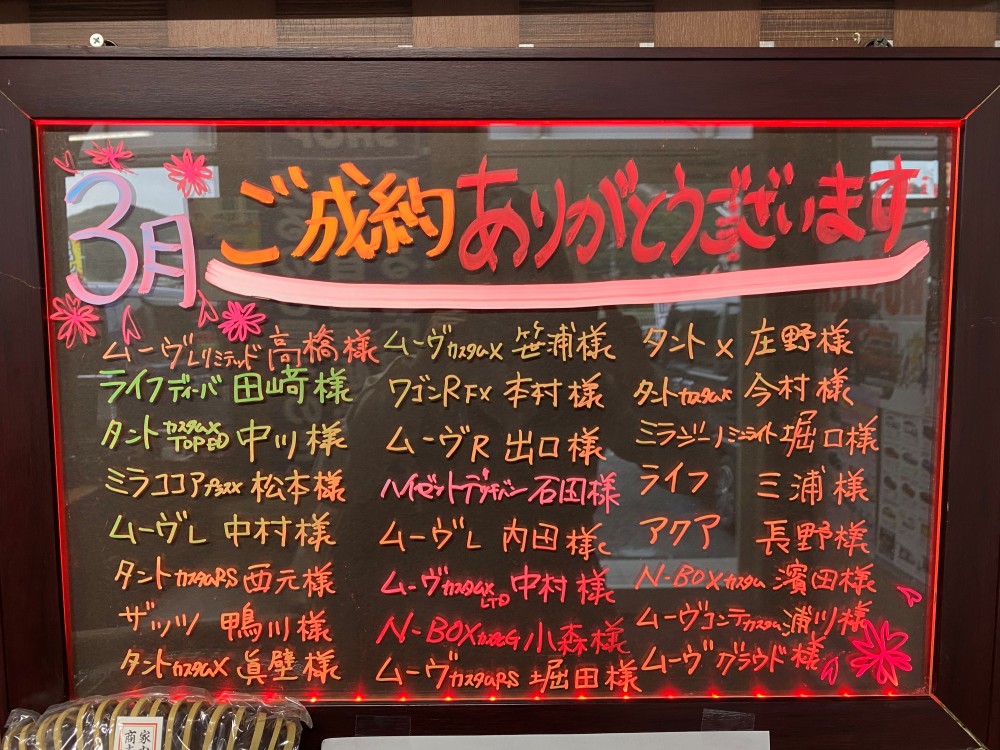 3月 ご成約ありがとうございます
ムーヴLリミテッド 高橋様
ライフディーバ 田﨑様
タントカスタムX TOPED 中川様
ミラココアプラスX 松本様
ムーヴL 中村様
タントカスタムRS 西元様
ザッツ 鴨川様
タントカスタムX 眞壁様
ムーヴカスタムX 笹浦様
ワゴンRFX 本村様
ムーヴR 出口様
ハイゼットデッキバン 石田様
ムーヴL 内田様
ムーヴカスタムX LTD 中村様
N-BOXカスタムG 小森様
ムーヴカスタムRS 堀田様
タントX 庄野様
タントカスタムX 今村様
ミラジーノミニライト 堀口様
ライフ 三浦様
アクア 長野様
N-BOXカスタム 濱田様
ムーヴコンテカスタム 浦川様
ムーヴ グラウド様
SHOP
商
家